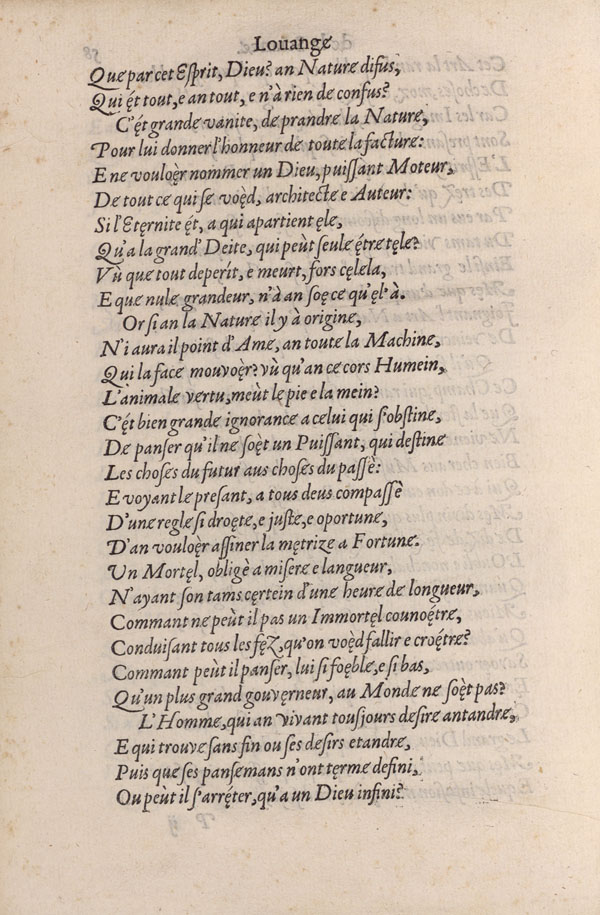 Louange
Que par cet Esprit, Dieu? an Nature difus,
Qui ę́t tout, e an tout, e n'à rien de confus?
C'ę́t grande vanite, de prandre la Nature,
Pour lui donner l'honneur de toute la facture:
E ne vouloęr nommer un Dieu, puiſſant Moteur,
De tout ce qui se voęd, architecte e Auteur:
Si l'Eternite ę́t, a qui apartient ęle,
Qu'a la grand' Deite, qui peùt seule ę́tre tęle?
Vù que tout deperit, e meurt, fors cęlela,
E que nule grandeur, n'à an soęce qu'ęl' à.
Or si an la Nature il y à origine,
N'i aura il point d'Ame, an toute la Machine,
Qui la face mouvoęr? vù qu'an ce cors Humein,
L'animale vertu, meùt le pie e la mein?
C'ę́t bien grande ignorance a celui qui s'obstine,
De panser qu'il ne soęt un Puiſſant, qui destine
Les choses du futur aus choses du paſſè:
E voyant le presant, a tous deus compaſſè
D'une regle si droęte, e juste, e oportune,
D'an vouloęr aſſiner la mętrize a Fortune.
Un Mortęl, obligè a misere e langueur,
N'ayant son tams cęrtein d'une heure de longueur,
Commant ne peùt il pas un Immortęl counoę́tre,
Conduisant tous les fęz, qu'on voęd fallir e croę́tre?
Commant peùt il panser, lui si foęble, e si bas,
Qu'un plus grand gouvęrneur, au Monde ne soęt pas?
L'Homme, qui an vivant tousjours desire antandre,
E qui trouve sans fin ou ses desirs etandre,
Puis que ses pansemans n'ont tęrme defini,
Ou peùt il s'arrę́ter, qu'a un Dieu infini?